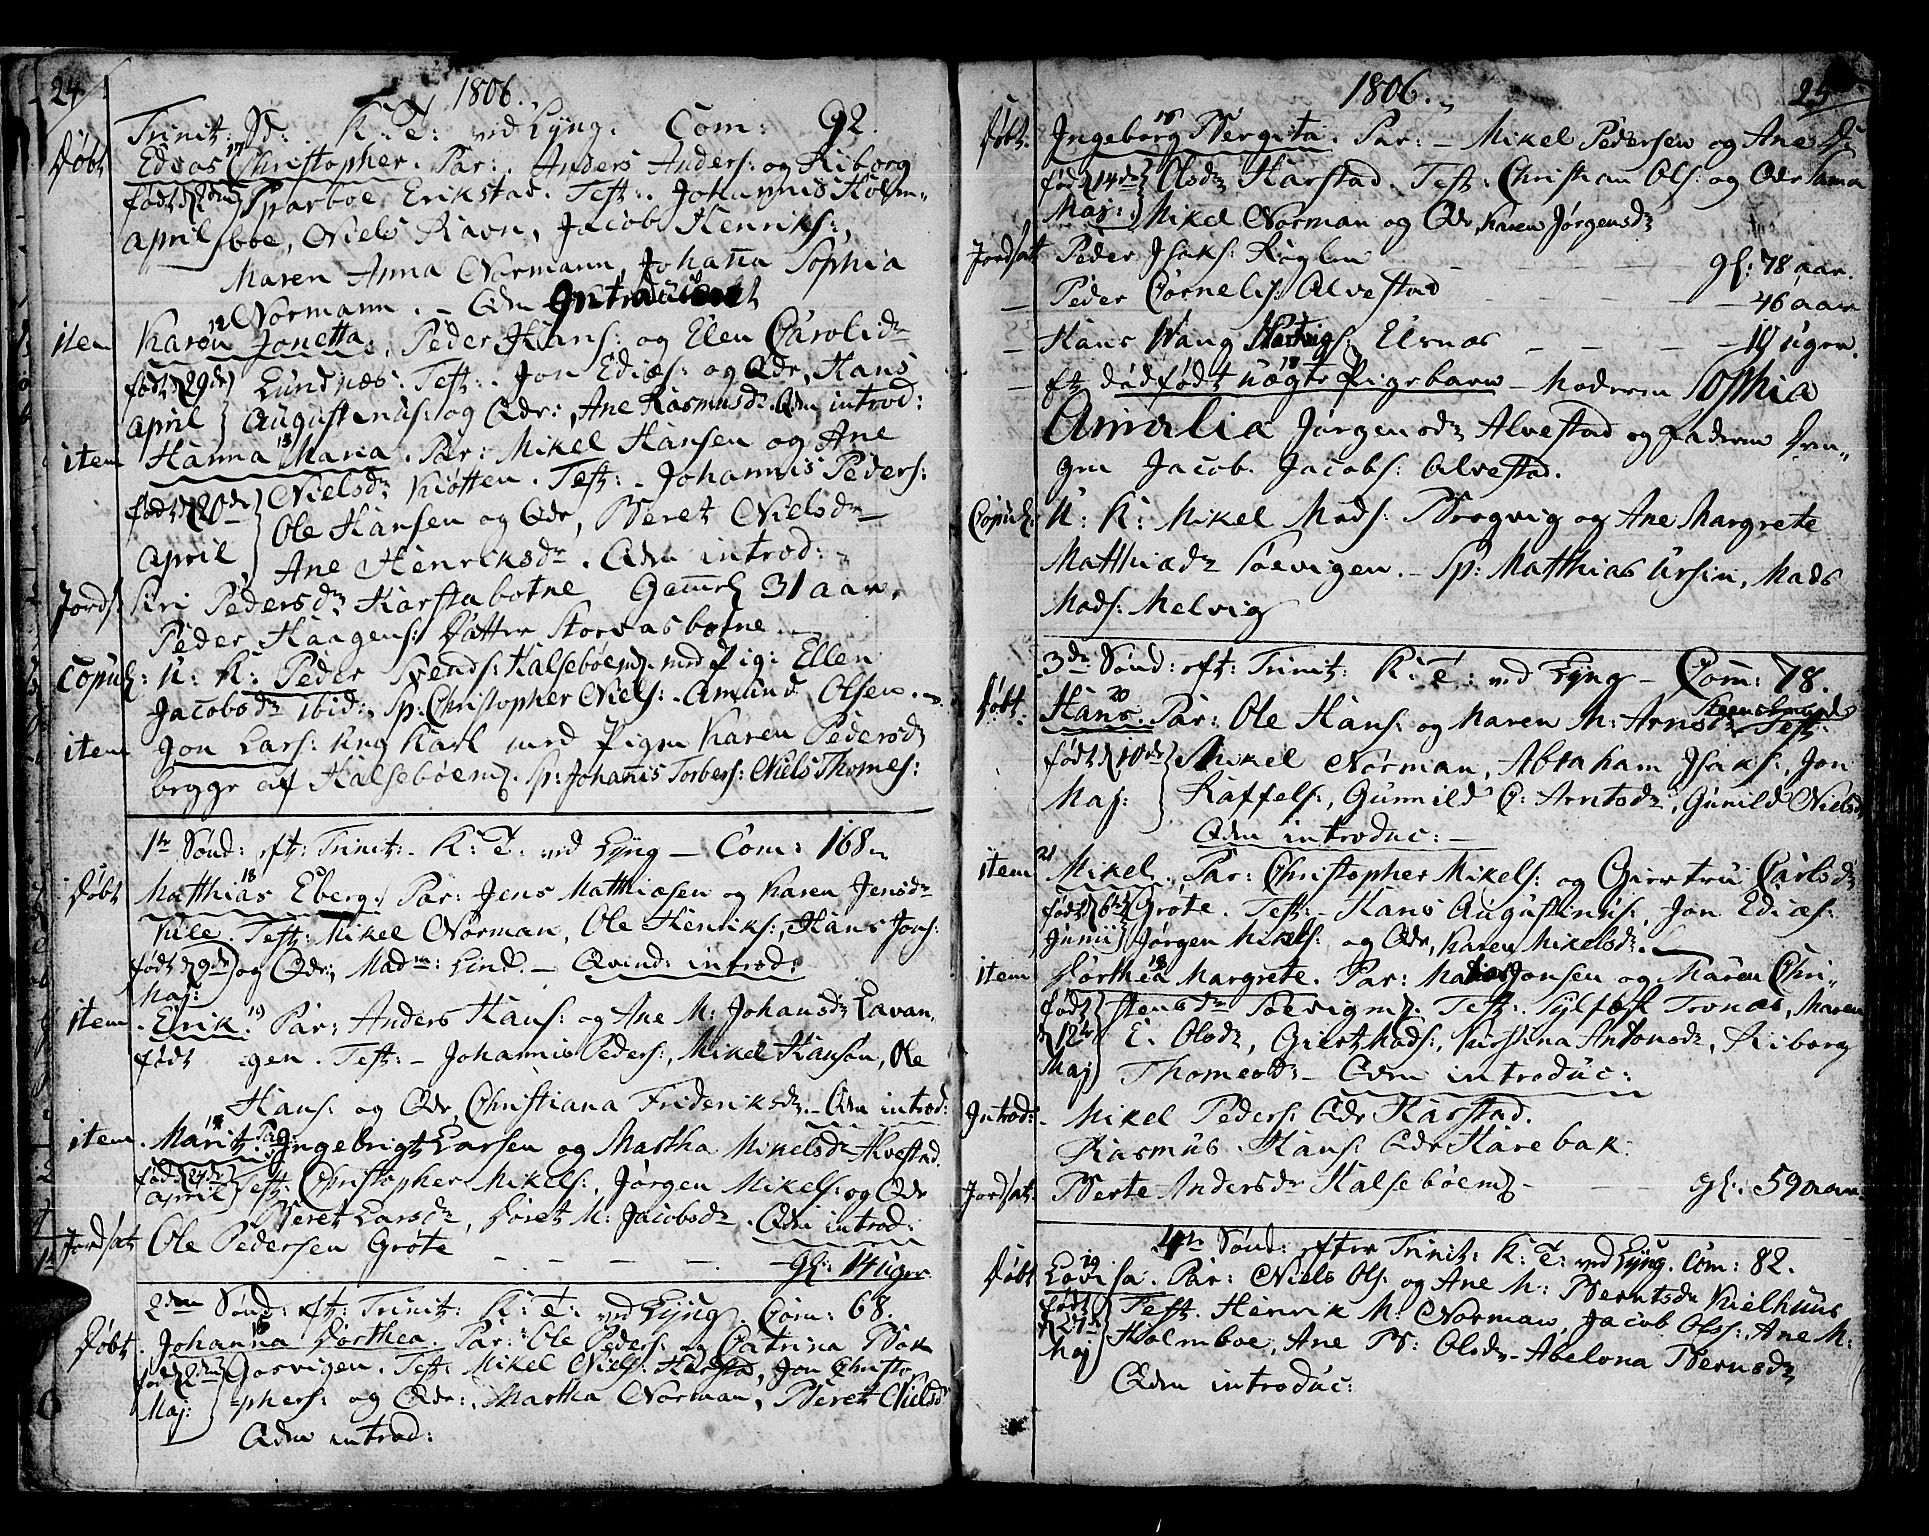 24
1806.
Trinit: Sd: K: T: ved Lÿng: Com: 92.
Døbt Edias Christopher. Par: Anders Anders: og Riborg
17
født d 2den Sparboe Erikstad. Test: Johannis Holm-
april boe, Niels Ravn, Jacob Henriks:,
Maren Anna Normann, Johanna Sophia
Normann. - Qdn Introduceret
item Karen Jonetta. Peder Hans: og Elen Carolidr
12
født d 29de Lundnæs. Test: Jon Ediæs: og Qdr, Hans
april Augustinus: og Qdr:, Ane Rasmusdr. Qdn introd:
item Hanna Maria. Par: Mikel Hansen og Ane
13
født d 20de Nielsdr Kiøtten. Test: - Johannis Peders:
april Ole Hansen og Qdr, Beret Nielsdr
Ane Henriksdr. Qdn introd:
Jords: Siri Pedersdr Harstabotne Gaml 31 aar,
Peder Haagens: Datter Storvasbotne.
Copul: U: K: Peder Svends: Halsebøen med Pig: Ellen
Jacobsdr ibid:, Sp: Christopher Niels: Amund Olsen.
item Jon Lars: ung Karl med Pigen Karen Pedersdr
begge af Halsebøen. Sp: Johannis Torbers: Niels Thomes:
1te Sønd: eft: Trinit: K: T: ved Lÿng - Com: 168.
Døbt Matthias Eberg. Par: Jens Mathiasen og Karen Jensdr
18
Test: Mikel Norman, Ole Henriks:, Hans Jons:
født d 9de og Qdr:, Madm: Lind. - Qvind: introd:
Maj:
item Erik. Par: Anders Hans: og Ane M: Johansdr Lavan-
19
født gen. Test: - Johannis Peders:, Mikel Hansen, Ole
Hans: og Qdr, Christiana Frideriksdr. - Qdn introd:
item Marit. Par: Ingebrigt Larsen og Martha Mikelsdr Kvestad.
14
født Test: Christopher Mikels:, Jørgen Mikels: og Qdr
april Beret Larsdr, Doret M: Jacobsdr. Qdn introd:
Jordsat Ole Pedersen Grøte - - - gl: 14 uger
2den Sønd: eft: Trinit: K: T: ved Lÿng. Com: 68.
Døbt. Johanna Dorthea. Par: Ole Peders: og Catrina Bak
15
født d 2den Gosvigen. Test: Mikel Niels: Harsta, Jon Christo-
Maj: phers: og Qdr:, Martha Norman, Beret Nielsd
Qdn introd:
25
1806.
Døbt. Ingeborg Bergita. Par: - Mikel Pedersen og Ane D:
16
født d 14de Olsdr Harstad. Test: Christian Ols: og Qdr Sama
Maj: Mikel Norman og Qdr, Karen Jørgensdr
Jordsat Peder Isaks: Røglen - - - gl: 78 aar.
- Peder Cornelis: Alvestad - - - 46 aar
- Hans Wang Hartvigs: Elsnos - - - 19 uger.
- et dødfødt uægte Pigebarn - Moderen Sophia
18
Amalia Jørgensdr Alvestad og Faderen Dren-
gen Jacob Jacobs: Alvestad.
Copul: U: K: Mikel Mads: Brogvig og Ane Margrete
Matthiædr Sœvigen. - Sp: Matthias Ursin, Mads
Mads: Melvig
3de Sønd: eft: Trinit: K: T: ved Lÿng - Com: 78.
Døbt. Hans. Par: Ole Hans: og Maren M: Arnsdr Test:
20
født d 10de Mikel Norman, Abraham Isaks:, Jon
Maj: Raffels:, Gunnild C: Arntsdr, Gunild Nielsd
Qdn introduc: -
item Mikel. Par: Christopher Mikels: og Giertru Carlsdr
21
født d 6te Grøte. Test: - Hans Augustinus:, Jon Ediæs:
Junii Jørgen Mikels: og Qdr, Karen Mikelsdr.
item Dorthea Margrete. Par: Mathias Jonsen og Maren Chri-
18
født stensdr Sœvigen. Test: Sylfæst Tronæs, Maren
d 12te E. Olsdr, Giert Mads:, Kirstina Antonsdr, Riborg
Maj Thomesdr - Qdn introduc:
Introd: - Mikel Peders: Qdr Harstad.
Rasmus Hans: Qdr Harebak.
Jordsat. Berte Andersdr Halsebøen - - gl: 59 aar.
4de Sønd: efter Trinit: K: T: ved Lÿng. Com: 82.
Døbt Lovisa. Par: Niels Ols: og Ane M: Berntsdr Kielhuus
19
født Test. Henrik M: Norman, Jacob Olss: Ane M:
d 27de Holmboe, Ane B: Olsdr - Abelona Bernsdr
Maj Qdn introduc: